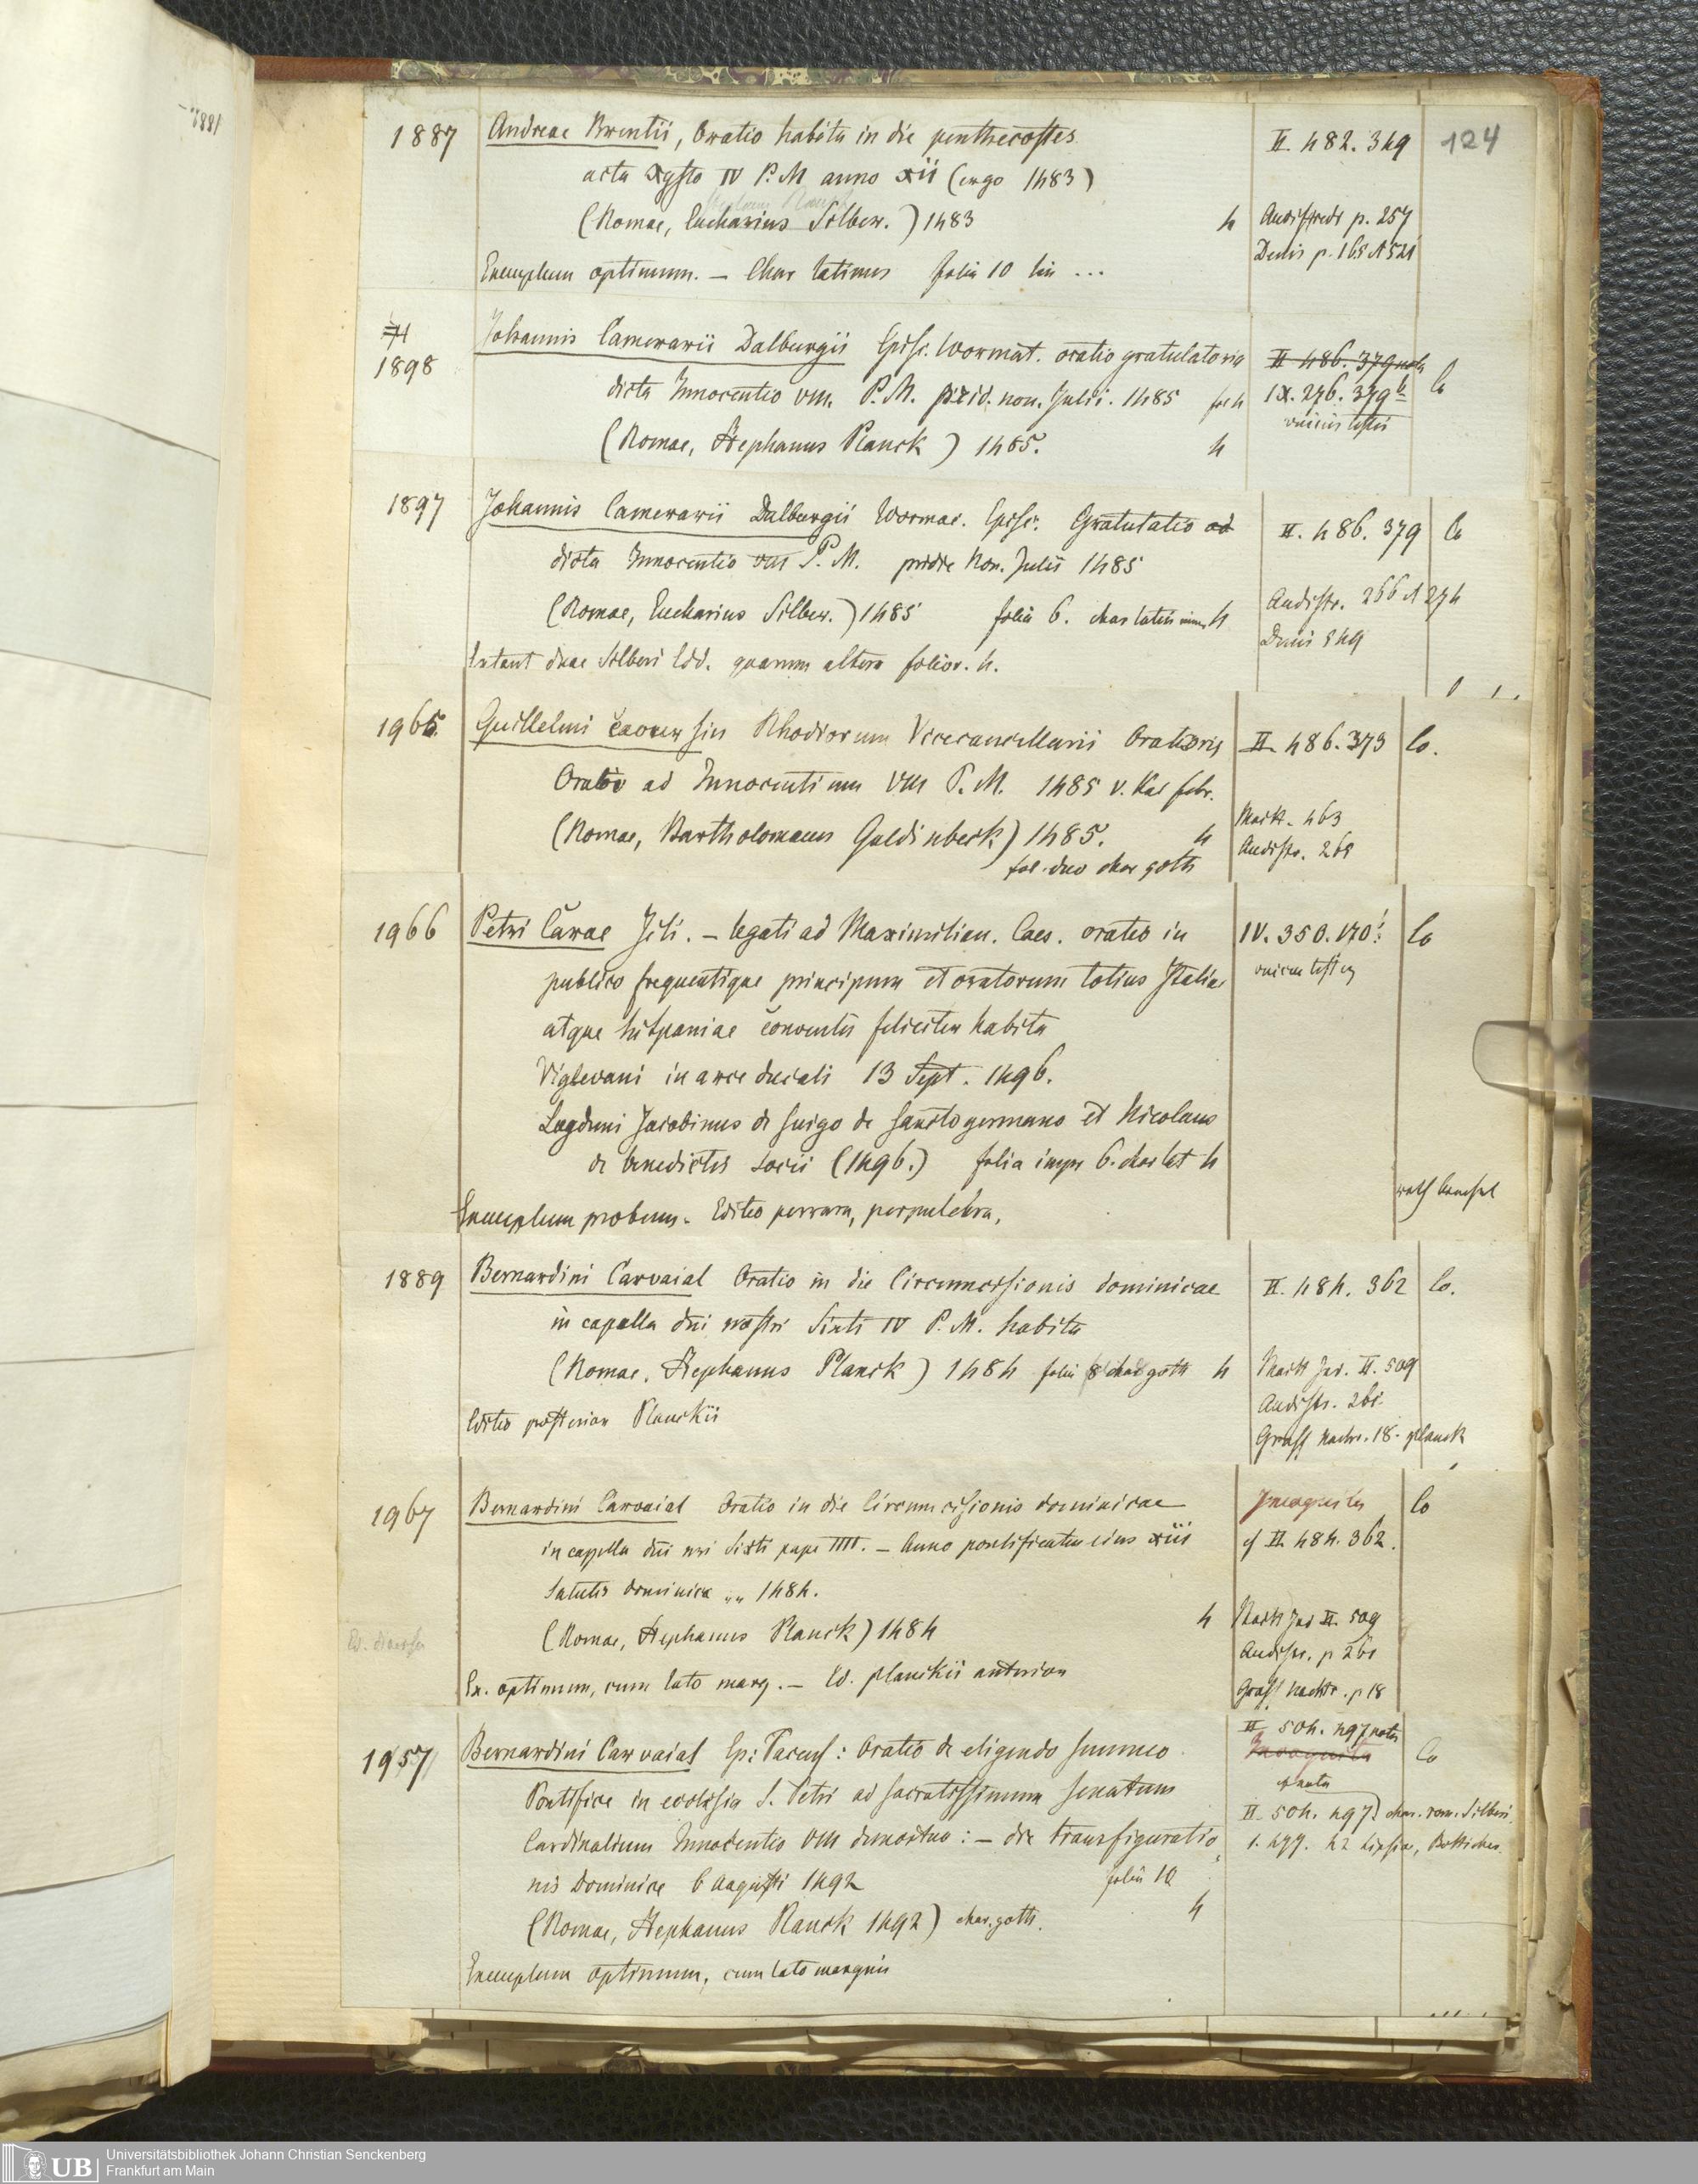 124
1887
Andreae Brentii, Oratio habita in die penthecostes
II. 482. 349
acta Xysto IV P. M anno xii (ergo 1483)
(Romae, Eucharius Silber.) 1483 4
Audiffredi p. 257
Denis p. 165 et 521
Exemplum optimum. — Char latinus folia 10 lin ...
1898
Johannis Camerarii Dalburgii Episc. Wormat. oratio gratulatoria
II 486. 379 nota
dicta Innocentio VIII. P. M. prid. non. Julii. 1485 fol 4
IX. 276. 379 b
unicus testis
(Romae, Stephanus Planck) 1485. 4
1897
Johannis Camerarii Dalburgii Wormac. Episc. Gratulatio ad
II. 486. 379
dicta Innocentio VIII P. M. pridie Non. Julii 1485
(Romae, Eucharius Silber.) 1485 folia 6. char latin 4
Audiffr. 266 et 274
Denis
Extant duae Silberi Edd. quarum altera folior. 4.
1965
Guillelmi Caouersin Rhodiorum Vicecancellarii Oratoris
II 486. 373
Co.
Oratio ad Innocentium VIII P. M. 1485 v. Kal febr.
(Romae, Bartholomaeus Guldinbeck) 1485. 4
Maitt. 463
Audiffr. 265
fol. duo char goth
1966
Petri Carae Jcti. — legati ad Maximilian. Caes. oratio in
IV. 350. 170
Co
publico frequentique principum et oratorum totius Italiae
atque hispaniae conventu feliciter habita
Viglevani in arce ducali 13 Sept. 1496.
Lugduni Jacobinus de Suigo de Sanctogermano et Nicolaus
de benedictis socii (1496.) folia impr 6. char lat 4
Exemplum probum. Editio perrara, perpulchra.
1889
Bernardini Carvaial Oratio in die Circumcisionis dominicae
II. 484. 362
Co.
in capella dni nostri Sixti IV P. M. habita
(Romae, Stephanus Planck) 1484 folia 8 char goth 4
Maitt Ind. II. 509
Audiffr. 261.
Editio posterior Planckii
1967
Bernardini Carvaial Oratio in die Circumcisionis dominicae
Incognita
Co
cf II. 484. 362.
in cappella dni nri Sixti pape IIII. — Anno pontificatus eius xiii
Salutis dominice „ 1484.
(Romae, Stephanus Planck) 1484 4
Maitt Ind II. 509
Audiffr. p 261
Ed. diversa
Ex. optimum, cum lato marg. — Ed. Planckii anterior
1957
Bernardini Carvaial Ep: Pacens: Oratio de eligendo summo
II 504. 497 nota
Incognita
Co
Pontifice in ecclesia S. Petri ad sacratissimum senatum
Cardinalium Innocentio VIII demortuo: — die transfiguratio
II. 504. 497. char. rom. Silberi
nis Dominice 6 Augusti 1492 folia 10
(Romae, Stephanus Planck 1492) char. goth. 4
Exemplum optimum, cum lato margine
UB
Universitätsbibliothek Johann Christian Senckenberg
Frankfurt am Main